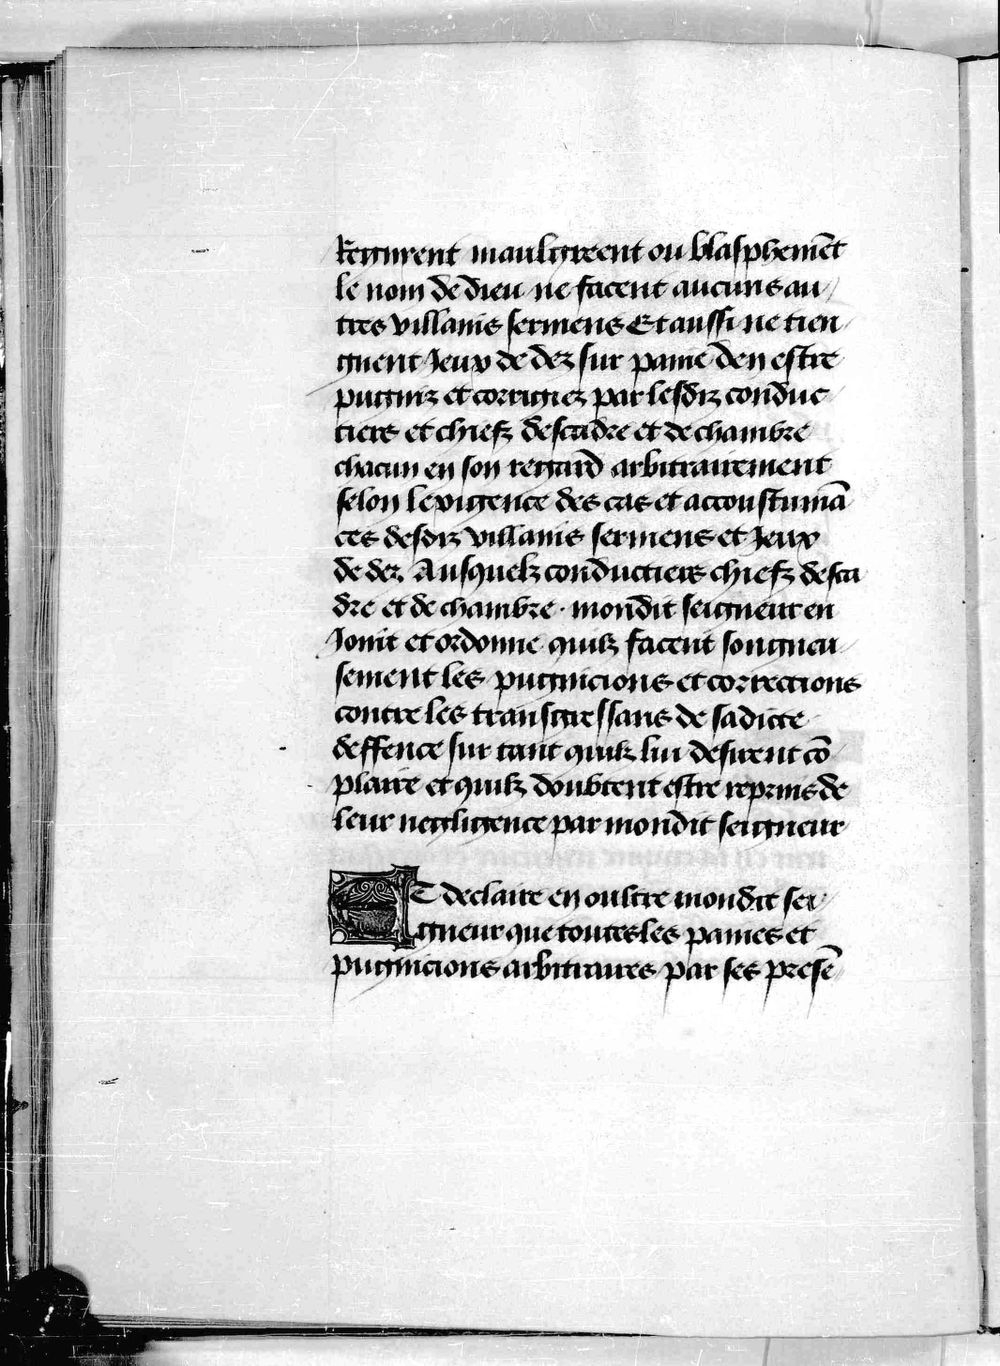 Regnient maulgreent ou blasphemēt
le nom de dieu ne facent aucuns au/
tres villains sermens Et aussi ne tien/
gnent Jeux de dez sur paine den estre
pugniz et corrigiez par lesdiz conduc/
tiers et chiefz descadre et de chambre
chacun en son regard arbitrairement
selon lexigence des cas et accoustumā
ces desdiz villains sermens et Jeux
de dez. Ausquelz conductiers chiefz desca
dre et de chambre · mondit seigneur en
Joint et ordonne quilz facent songneu/
sement les pugnicions et corrections
contre les transgressans de sadicte
deffence sur tant quilz lui desirent cō
plaire et quilz doubtent estre reprins de
leur negligence par mondit seigneur
ET declaire en oultre mondit sei/
gneur que toutes les paines et
pugnicions arbitraires par ses presē/